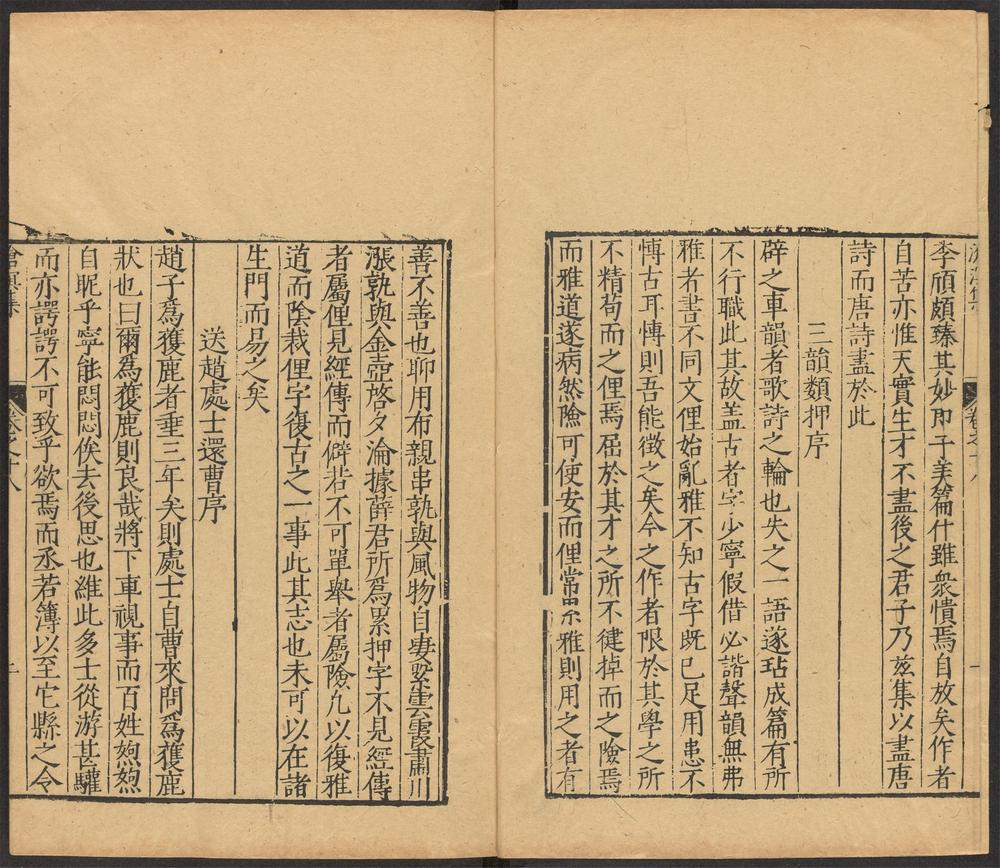 李頎頗臻其妙即子美篇什雖衆憒焉自放矣作者
自苦亦惟天實生才不盡後之君子乃兹集以盡唐
詩而唐詩盡於此
三韻類押序
辟之車韻者歌詩之輪也失之一語遂玷成篇有所
不行職此其故盖古者字少寧假借必諧聲韻無弗
雅者書不同文俚始亂雅不知古字既已足用患不
慱古耳慱則吾能徵之矣今之作者限於其學之所
不精苟而之俚焉屈於其才之所不健掉而之險焉
而雅道遂病然險可使安而俚常累雅則用之者有
善不善也聊用布親串孰與風物自妻緊雲霞肅川
漲孰與金壺啓夕淪據薛君所爲累押字不見經傳
者屬俚見經傳而僻若不可單舉者屬險九以復雅
道而陰裁俚字復古之一事此其志也未可以在諸
生門而易之矣
送趙處士還曹序
趙子爲獲鹿者垂三年矣則處士自曹來問爲獲鹿
狀也曰爾爲獲鹿則良哉將下車視事而百姓煦煦
自昵乎寧能悶悶俟去後思也維此多士從游甚驩
而亦諤諤不可致乎欲焉而丞若簿以至它縣之令
滄溟集 卷之十八 二